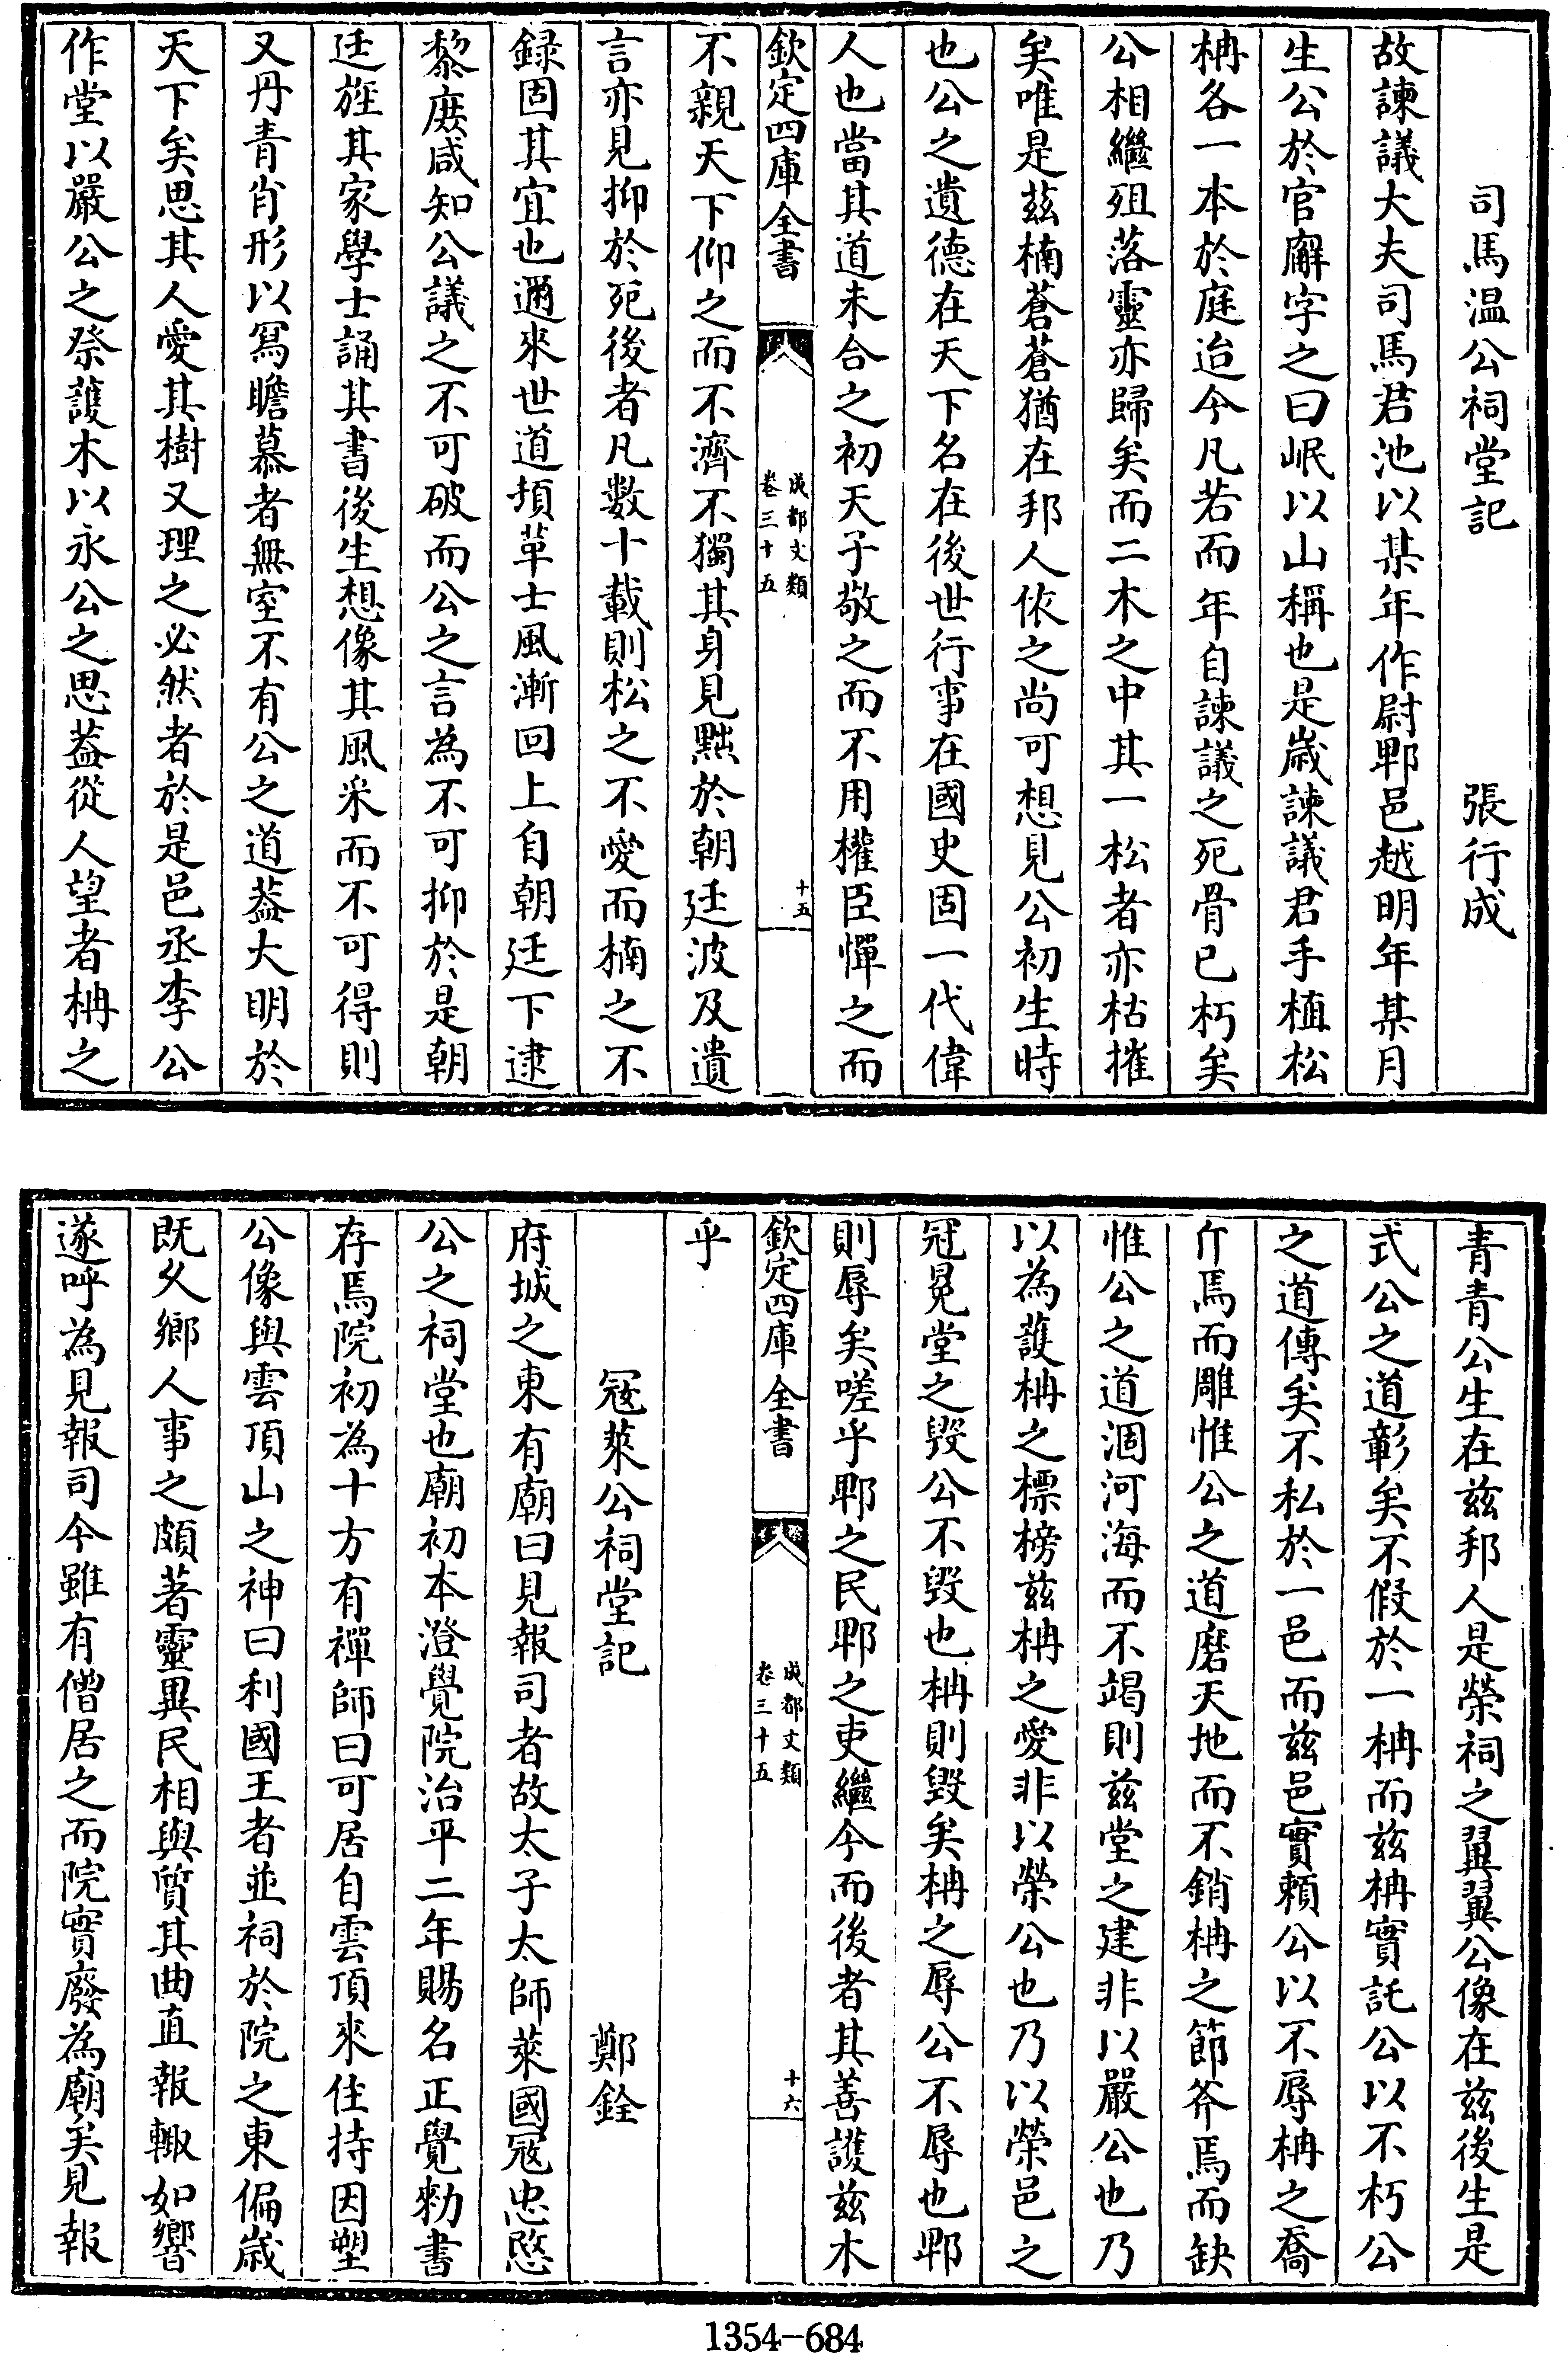 司馬温公祠堂記 張行成
故諫議大夫司馬君池以某年作尉郫邑越明年某月
生公於官廨字之曰岷以山稱也是歲諫議君手植松
柟各一本於庭迨今凡若而年自諫議之死骨已朽矣
公相繼殂落靈亦歸矣而二木之中其一松者亦枯摧
矣唯是兹楠蒼蒼猶在邦人依之尚可想見公初生時
也公之遺德在天下名在後世行事在國史固一代偉
人也當其道未合之初天子敬之而不用權臣憚之而
欽定四庫全書 成都文類 卷三十五 十五
不親天下仰之而不濟不獨其身見黜於朝廷波及遺
言亦見抑於死後者凡數十載則松之不愛而楠之不
録固其宜也邇來世道頃革士風漸回上自朝廷下逮
黎庶咸知公議之不可破而公之言為不可抑於是朝
廷旌其家學士誦其書後生想像其風采而不可得則
又丹青肖形以冩瞻慕者無室不有公之道葢大明於
天下矣思其人愛其樹又理之必然者於是邑丞李公
作堂以嚴公之祭護木以永公之思葢從人望者柟之
青青公生在兹邦人是榮祠之翼翼公像在兹後生是
式公之道彰矣不假於一柟而兹柟實託公以不朽公
之道傳矣不私於一邑而兹邑實賴公以不辱柟之喬
斤焉而雕惟公之道磨天地而不銷柟之節斧焉而缺
惟公之道涸河海而不竭則兹堂之建非以嚴公也乃
以為護柟之標榜兹柟之愛非以榮公也乃以榮邑之
冠冕堂之毁公不毁也柟則毁矣柟之辱公不辱也郫
則辱矣嗟乎郫之民郫之吏繼今而後者其善護兹木
欽定四庫全書 成都文類 卷三十五 十六
乎
冦萊公祠堂記 鄭銓
府城之東有廟曰見報司者故太子太師萊國冦忠愍
公之祠堂也廟初本澄覺院治平二年賜名正覺勅書
存焉院初為十方有禪師曰可居自雲頂來住持因塑
公像與雲頂山之神曰利國王者並祠於院之東偏歲
既久鄉人事之頗著靈異民相與質其曲直報輙如響
遂呼為見報司今雖有僧居之而院實廢為廟矣見報
1354-684